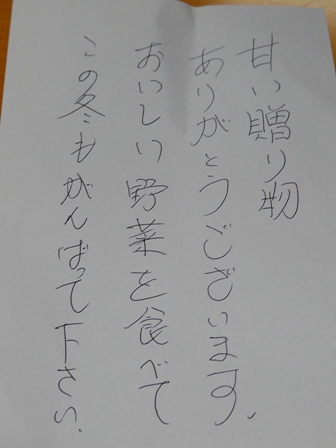 甘い贈り物
ありがとうございます。
おいしい野菜を食べて
この冬もがんばって下さい。